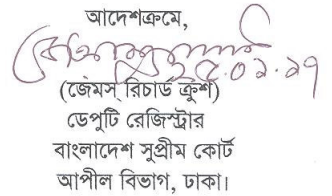 আদেশক্রমে,
২৫.০১.১৭
(জেমস্ রিচার্ড ক্রুশ)
ডেপুটি রেজিস্ট্রার
বাংলাদেশ সুপ্রীম কোর্ট
আপীল বিভাগ, ঢাকা।